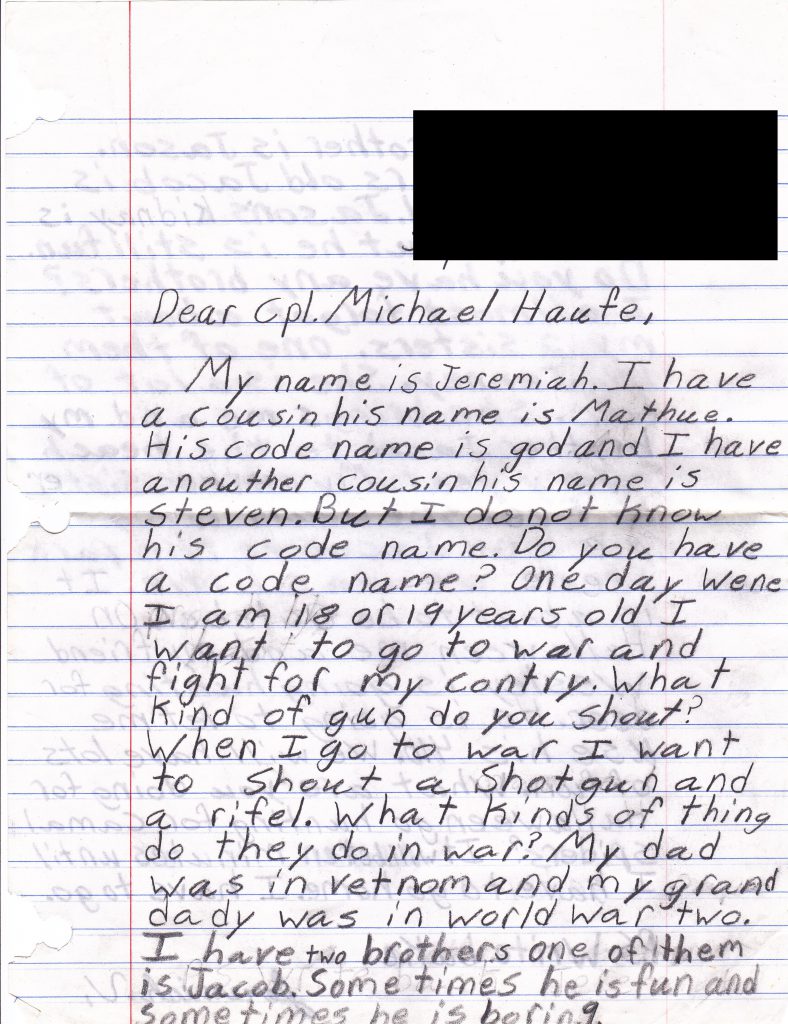 Dear Cpl. Michael Haufe,
My name is Jeremiah. I have
a cousin his name is Mathue.
His code name is god and I have
anouther cousin his name is
steven. But I do not know
his code name. Do you have
a code name? One day wene
I am 18 or 19 years old I
want to go to war and
fight for my contry. What
kind of gun do you shout?
When I go to war I want
to shout a shotgun and
a rifel. What kinds of thing
do they do in war? My dad
was in vetnom and my grand
dady was in world war two.
I have two brothers one of them
is Jacob. Some times he is fun and
sometimes he is boring.